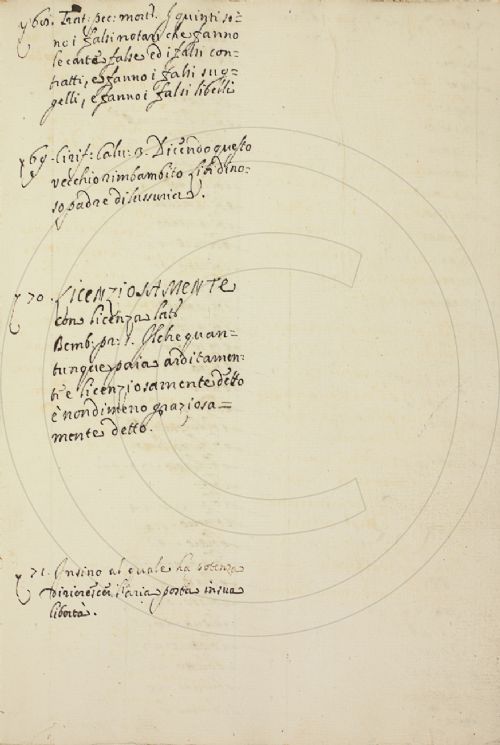 y 68. Trat: pec: mort: I quinti so=
no i falsi notari che fanno
le carte false ed i falsi con=
tratti, e fanno i falsi sug=
gelli, e fanno i falsi libelli
y 69. Cirif: Calu: 3. Dicendo questo
vecchio rimbambito libidino=
so padre di lussuria.
y 70. LICENZIOSAMENTE
con licenza lat:
Bemb: pr: 1. Il che quan=
tunque paia arditamen=
te e licenziosamente detto
è nondimeno graziosa=
mente detto.
y 71. Insino al quale ha potenza
Maria posta in sua
libertà.